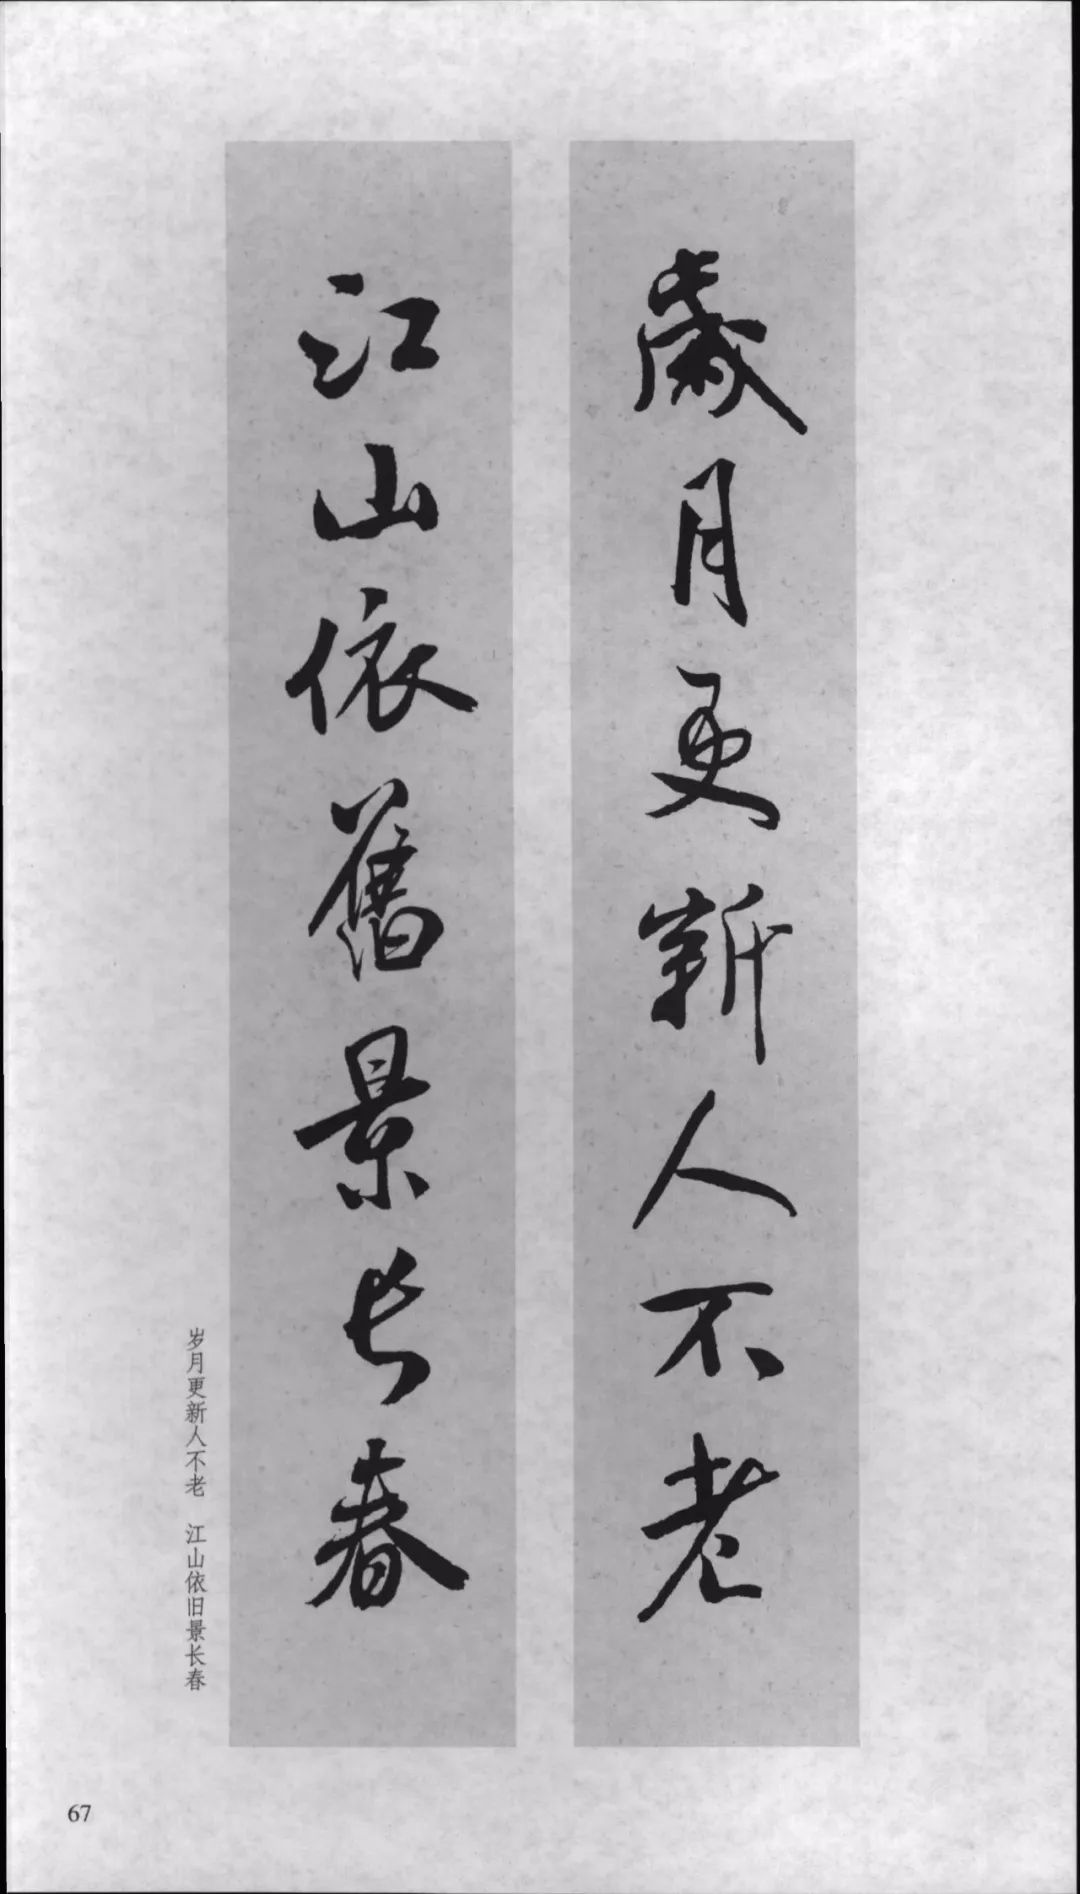 歲月更新人不老
江山依舊景長春
岁月更新人不老　江山依旧景长春
67